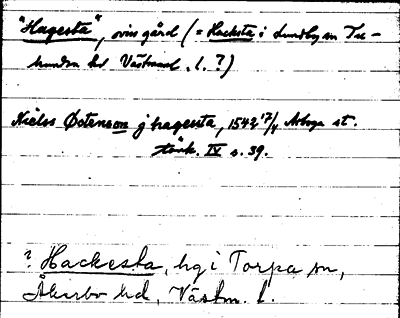 "Hagesta", oviss gård (= Hacksta i Lundby sn Tu-
hundra hd Västmanl. l. ?)
Nielss Östenson j hagesta, 1542 17/4 Arboga st.
tänk. IV s. 39.
? Hackesta, by i Torpa sn,
Åkerbo hd, Västm. l.